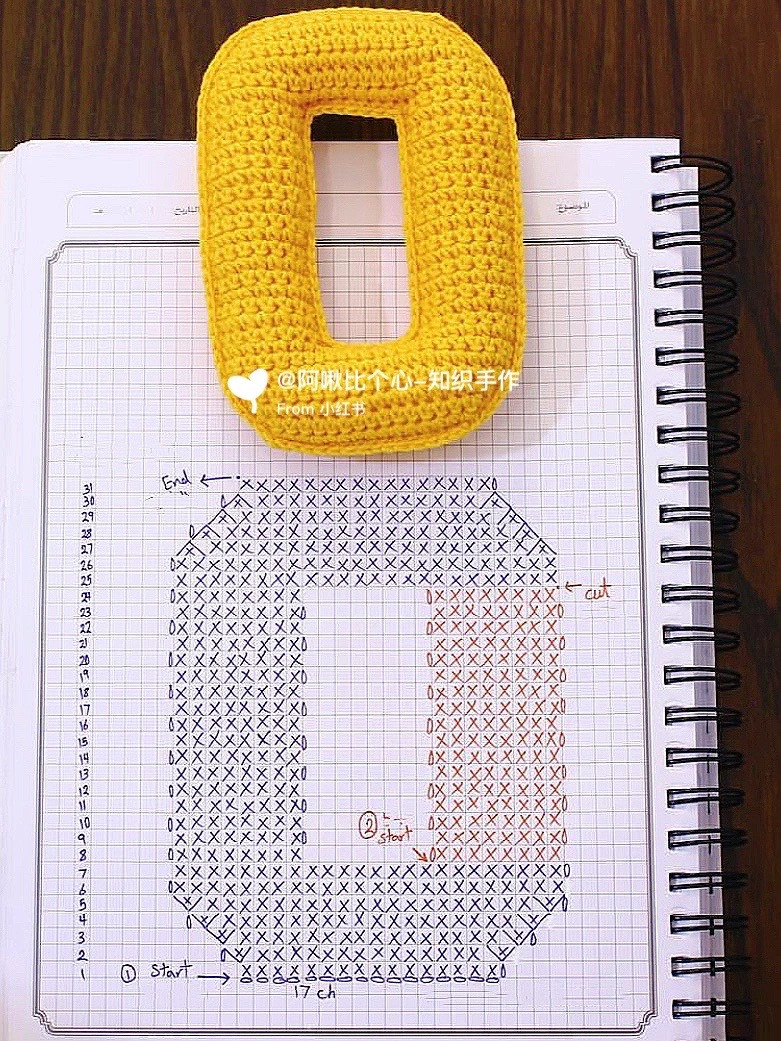 الموضوع:
التاريخ
@阿啾比个心-知识手作
From 小红书
End
31
30
29
28
27
26
25
24
cut
23
22
21
20
19
18
17
16
15
14
13
12
11
10
② start
9
8
7
6
5
4
3
2
1
① Start
17 ch